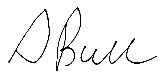 D Bull